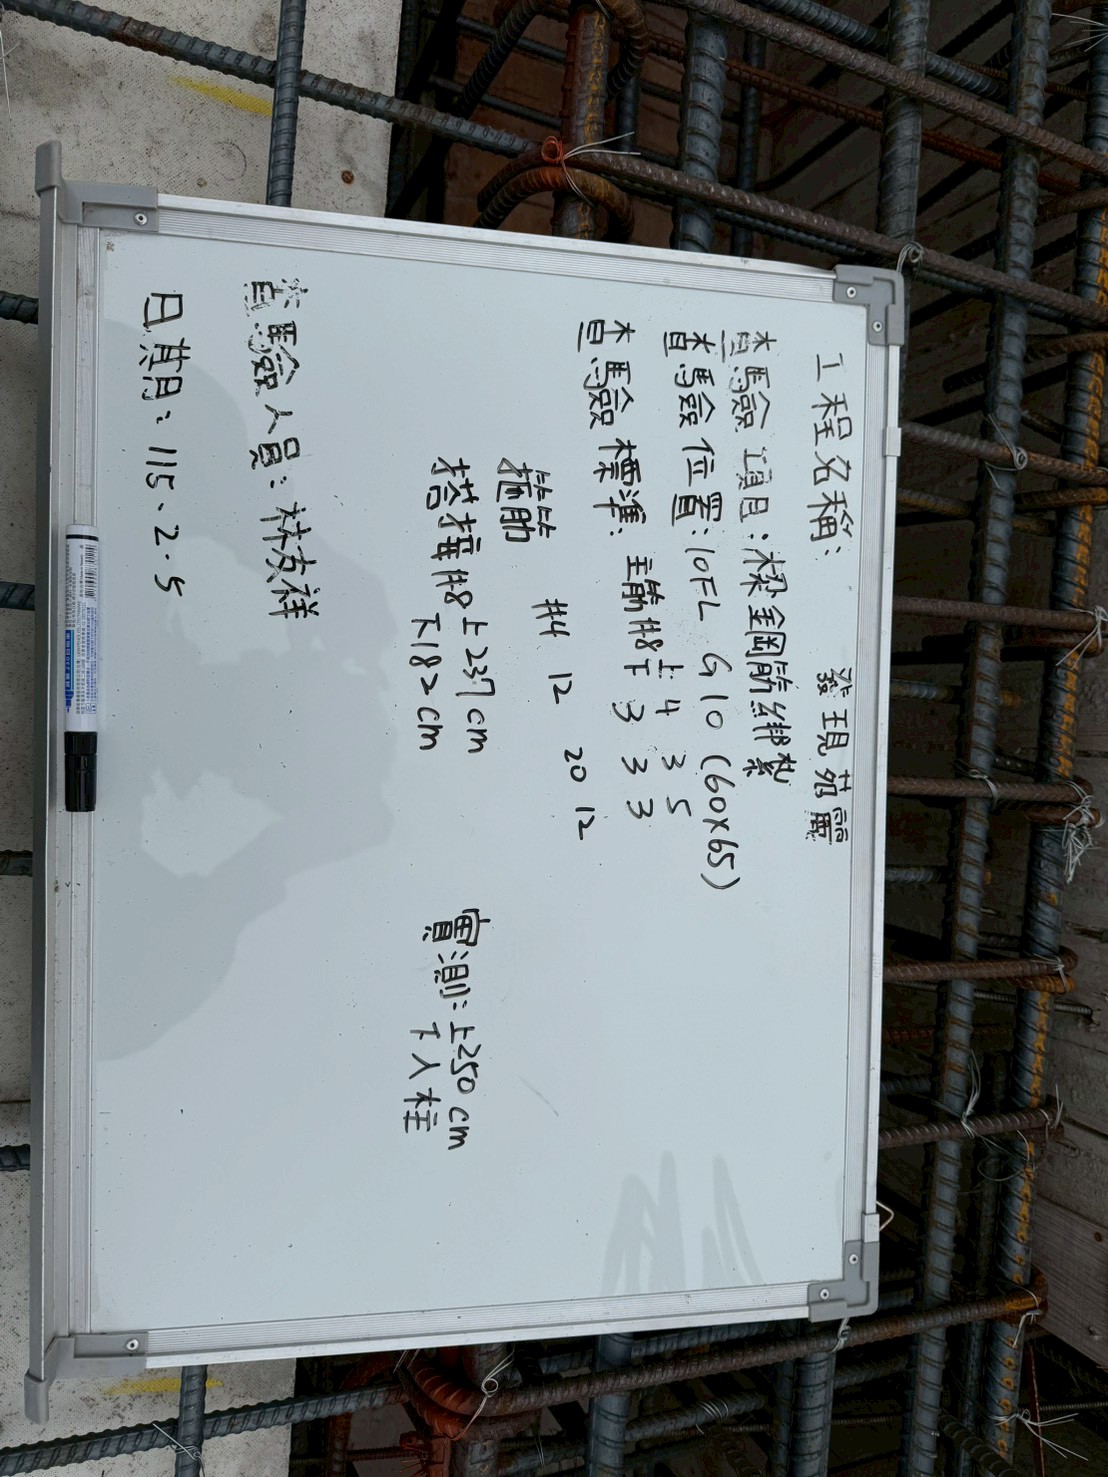 工程名稱： 發現苑麗
查驗項目：樑鋼筋綁紮
查驗位置：10FL G10 (60x65)
查驗標準：主筋#8 上 4 3 5
下 3 3 3
20
箍筋 #4 12 12
搭接#8 上237cm 實測：上250cm
下182cm 下入柱
查驗人員：林友祥
日期：115、2.5